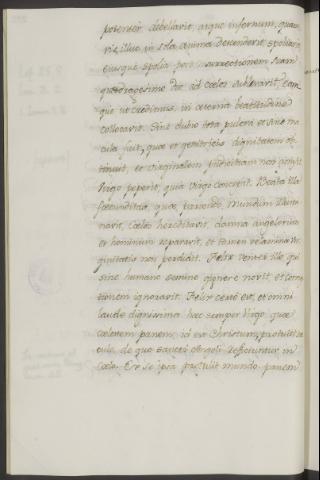 potenter debellavit, atque infernum, quam
vis illuc in sola anima descenderit spoliavit
eiusque spolia post resurrectionem suam
quadragesimo die ad coelos sublevavit, eam
que ut credimus, in aeterna beatitudine
collocavit. Sine dubio tota pulcra et sine ma
cula fuit, quae et genitricis dignitatem ob
tinuit, et virginalem pudicitiam non amisit
Virgo peperit, quia virgo concepit. Beata illa
foecunditas, quae pariendo mundum illumi
navit, coelos hereditavit, damna angelorum
et hominum reparavit, et tamen velamina vir
ginitatis non perdidit. Felix venter ille qui
sine humano semine gignere novit, et corrup
tionem ignoravit. Felix certe est, et omni
laude dignissima haec semper Virgo, quae
coelorum panem, id est Christum, protulit
cula de quo sancti Angeli reficiuntur in
coelo. Ere se ipsa protulit mundo panem